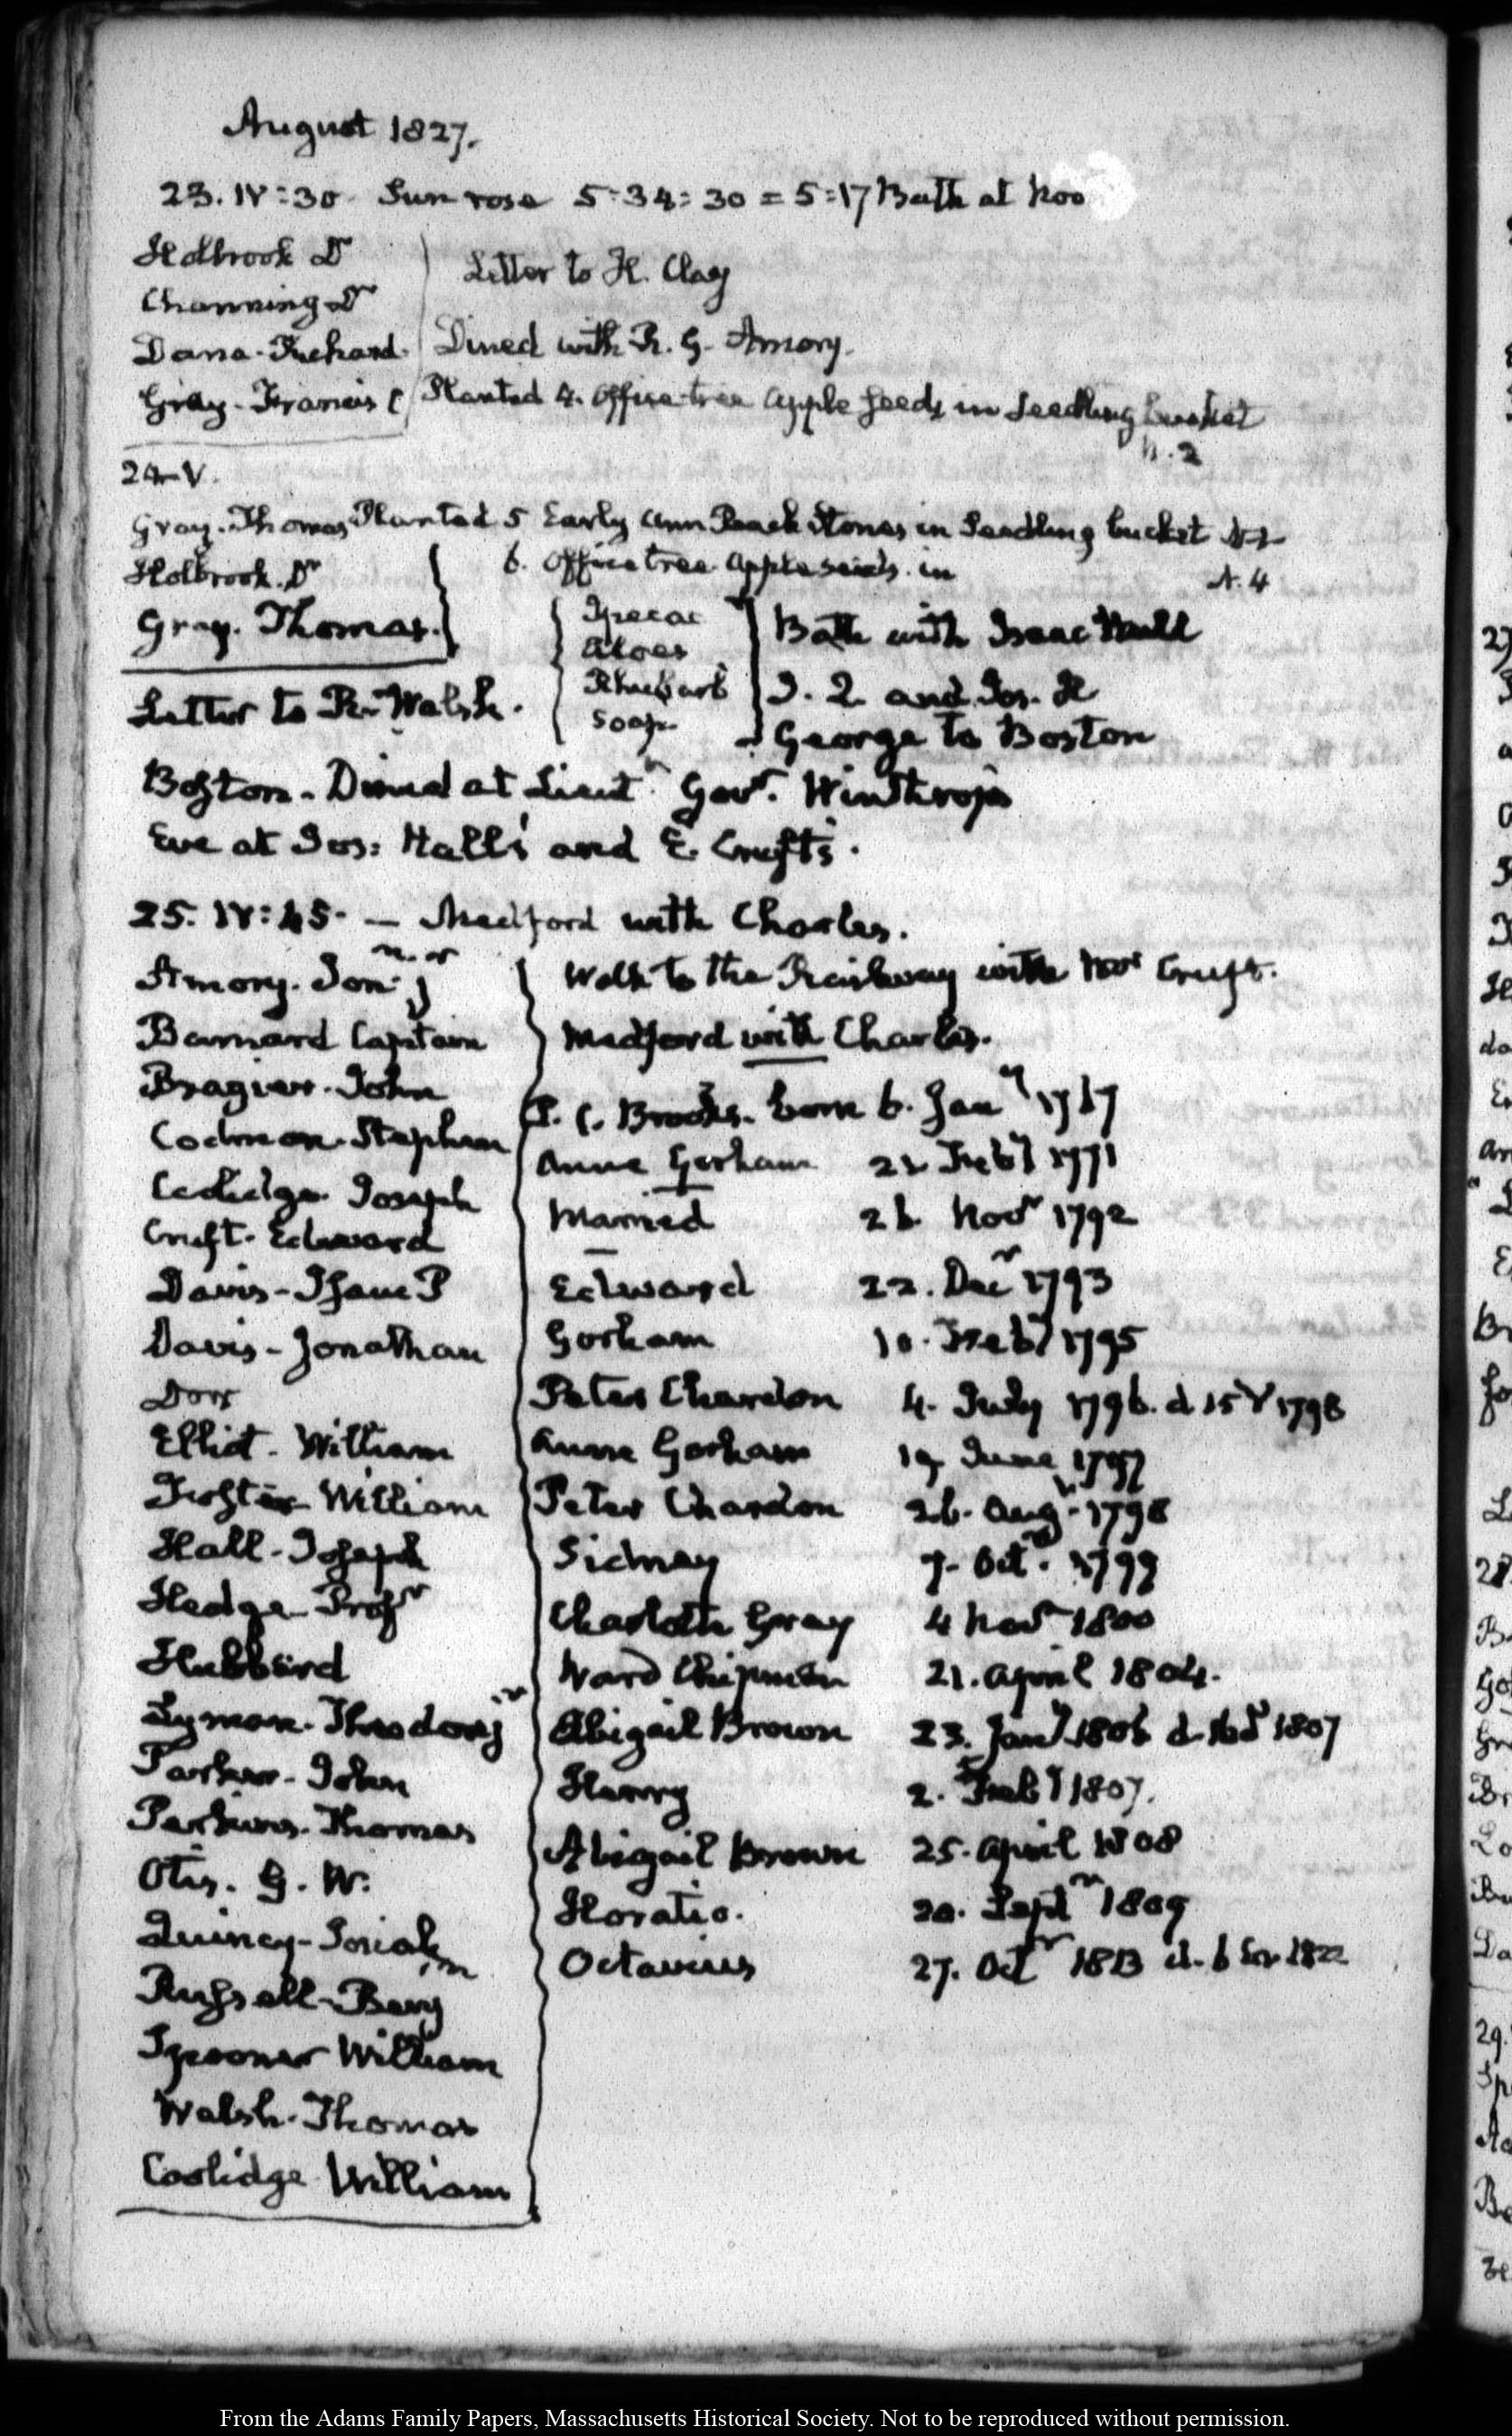 August 1827.
23. IV:30. Sun rose 5:34:30 = 5:17 Bath at Noo
Holbrook Dr
Letter to H. Clay
Channing Dr
Dana. Richard.
Dined with R. G. Amory.
Gray. Francis C
Planted 4. Office tree apple seeds in Seedling bucket
N. 2
24. V.
Gray. Thomas Planted 5 Early Ann Peach Stones in Seedling bucket
Holbrook. Dr
6. Office tree apple seeds in N. 4
Gray. Thomas.
Ipecac
Aloes
Rhubarb
Soap.
Bath with Isaac Hull
J. Q. and Jos. H
George to Boston
Letter to R. Walsh.
Boston. Dined at Lieut. Govr. Winthrop's
Eve at Jos: Hall's and E. Cruft's.
25. IV:45. — Medford with Charles.
Amory. Jon: junr
Walk to the Railway with Cruft.
Barnard Captain
Medford with Charles.
Brazier. John
P. C. Brooks. born 6. Jany 1767
Codman. Stephen
Anne Gorham 21 Feby 1771
Coolidge Joseph
Married 26 Novr 1792
Cruft. Edward
Davis - Isaac P
Edward 22. Decr 1793
Davis - Jonathan
Gorham 10. Feby 1795
Dorr
Peter Chardon 4. July 1796. d 1798
Elliot. William
Anne Gorham 19 June 1797
Foster William
Peter Chardon 26. Aug. 1798
Hall - Joseph
Sidney 7. Octr. 1799
Hedge Profr
Charlotte Gray 4 Novr 1800
Hubbard
Ward Chipman 21. April 1804.
Lyman. Theodore jr
Abigail Brown 23. Jany 1806 d. 1807
Parker. John
Henry 2. Feby 1807.
Perkins. Thomas
Abigail Brown 25. April 1808
Otis. G. W.
Horatio. 20. Septr 1809
Quincy - Josiah
Octavius 27. Octr 1813 d. 6 1822
Russell - Benj
Spooner William
Walsh. Thomas
Coolidge William
From the Adams Family Papers, Massachusetts Historical Society. Not to be reproduced without permission.